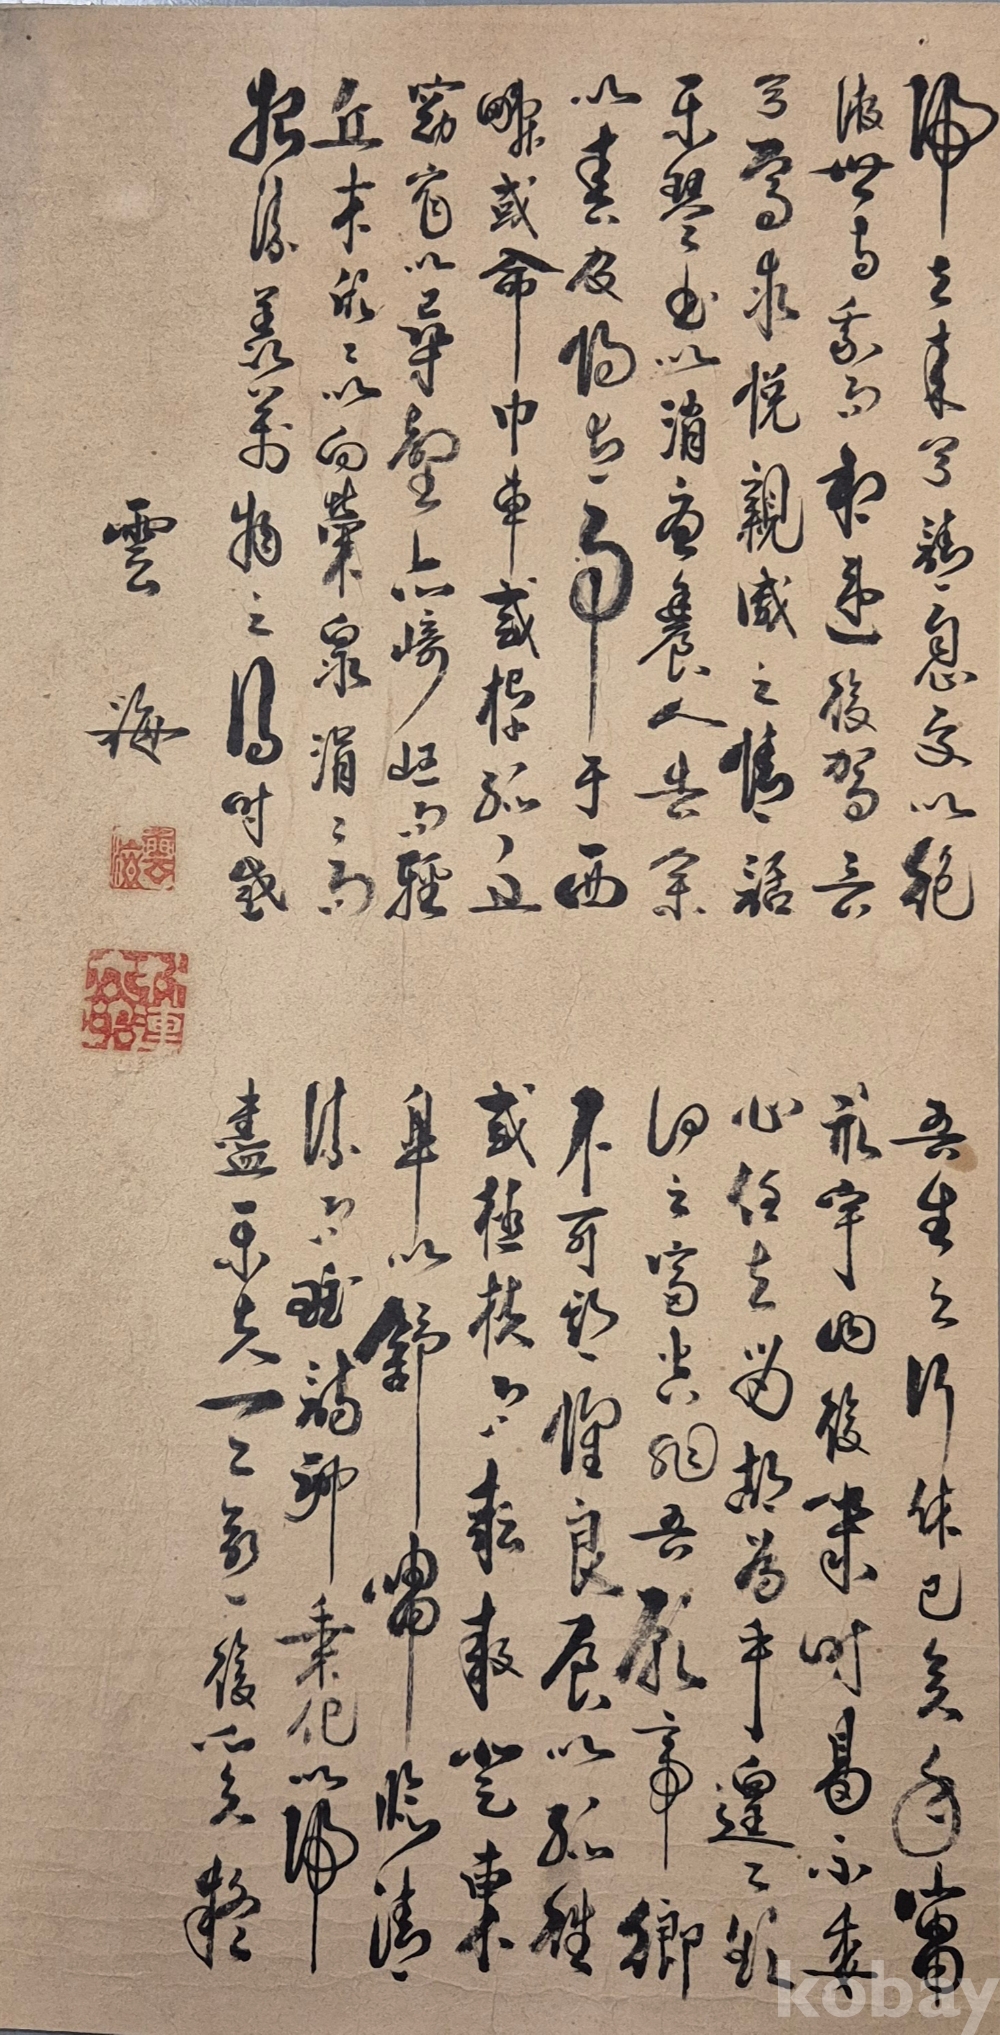 歸去來兮請息交以絶
游世与我而相遺復駕言
兮焉求悅親戚之情話
樂琴書以消憂農人告余
以春及將有事于西
疇或命巾車或棹孤舟旣
窈窕以尋壑亦崎嶇而經
丘木欣々以向榮泉涓々而
始流羨萬物之得時感
吾生之行休已矣乎寓
形宇內復幾時曷不委
心任去留胡為乎遑々欲
何之富貴非吾願帝鄉
不可期懷良辰以孤往
或植杖而耘耔登東
皐以舒嘯臨清
流而賦詩聊乘化以歸
盡樂夫天命復奚疑
雲海
kobay